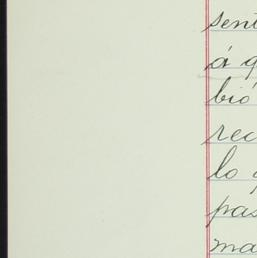 sent
á q
bió
rec
lo q
pas
ma